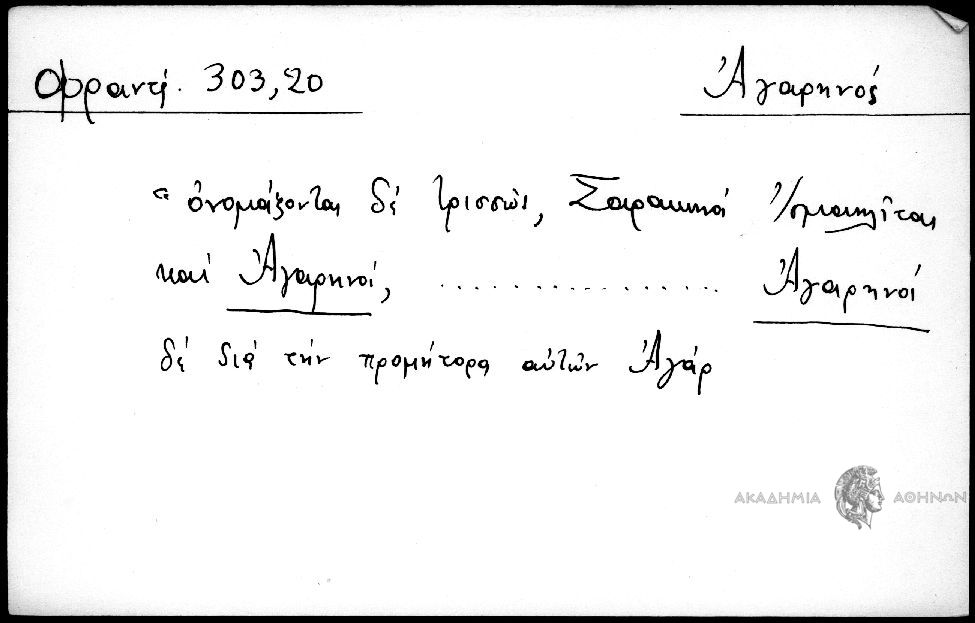 Φραντζ. 303,20
Ἀγαρηνός
"ὀνομάζονται δέ τρισσῶς, Σαρακηνοί Ἰσμαηλῖται
καί Ἀγαρηνοί, ................ Ἀγαρηνοί
δέ διά τήν προμήτορα αὐτῶν Ἀγάρ
ΑΚΑΔΗΜΙΑ ΑΘΗΝΩΝ